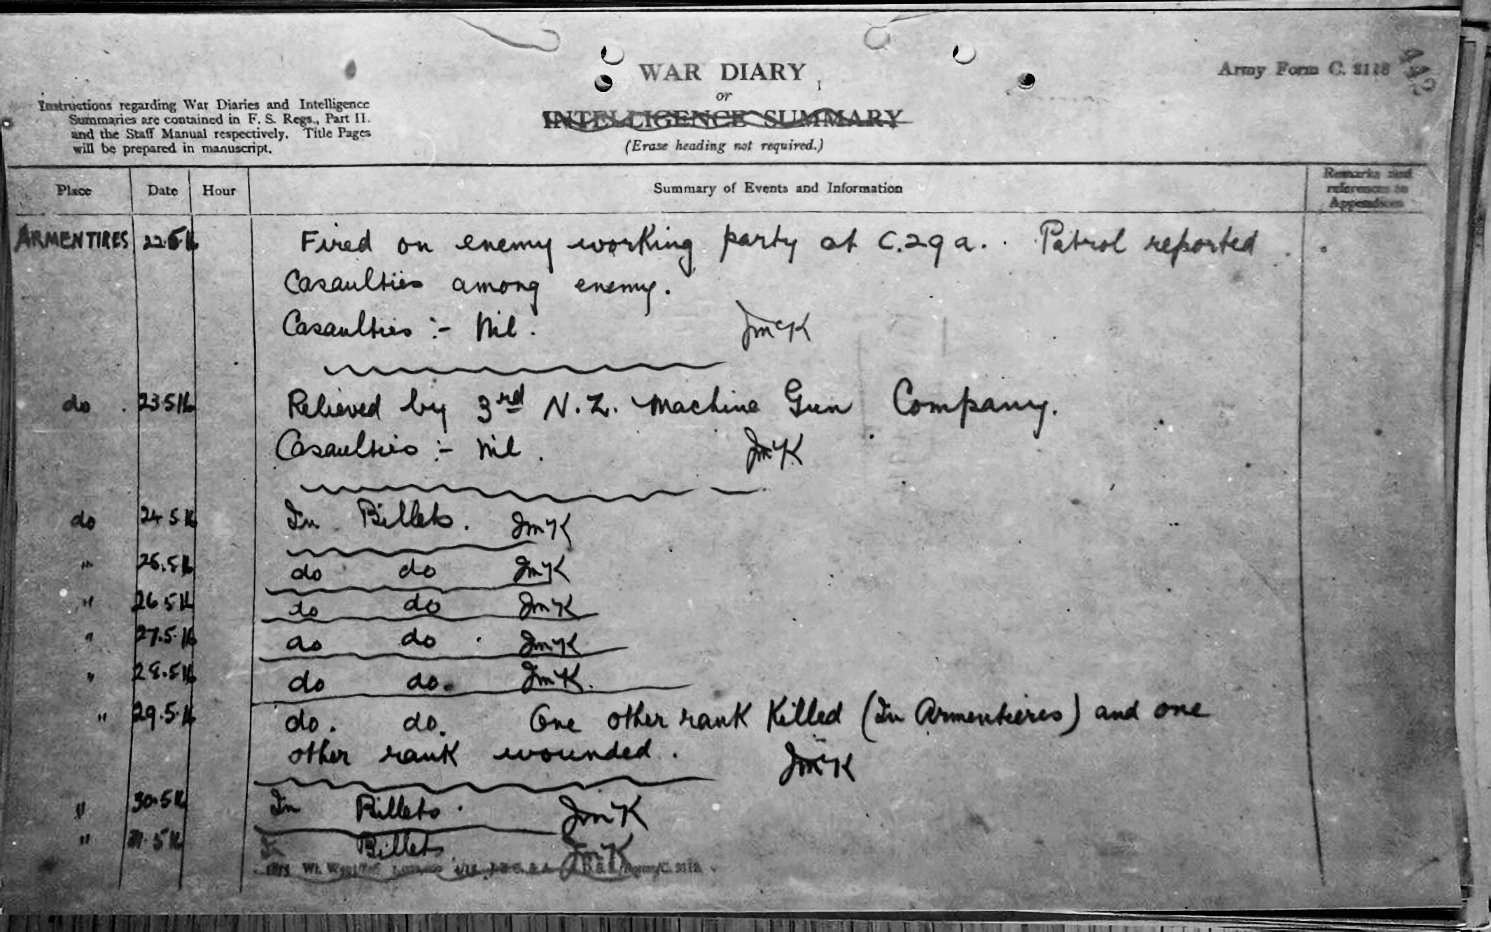 WAR DIARY
or
INTELLIGENCE SUMMARY
(Erase heading not required.)
Army Form C. 2118
Instructions regarding War Diaries and Intelligence
Summaries are contained in F. S. Regs., Part II.
and the Staff Manual respectively. Title Pages
will be prepared in manuscript.
Place Date Hour Summary of Events and Information Remarks and
references to
Appendices
ARMENTIRES 22.5.16 Fired on enemy working party at C.29a. Patrol reported
Casaulties among enemy.
Casaulties :- Nil. JMcK
do 23.5.16 Relieved by 3rd N.Z. Machine Gun Company.
Casaulties :- Nil. JMcK
do 24.5.16 In Billets. JMcK
" 25.5.16 do do JMcK
" 26.5.16 do do JMcK
" 27.5.16 do do. JMcK
" 28.5.16 do do. JMcK.
" 29.5.16 do. do. One other rank Killed (In Armentieres) and one
other rank wounded. JMcK
" 30.5.16 In Billets. JMcK
" 31.5.16 Billets JMcK